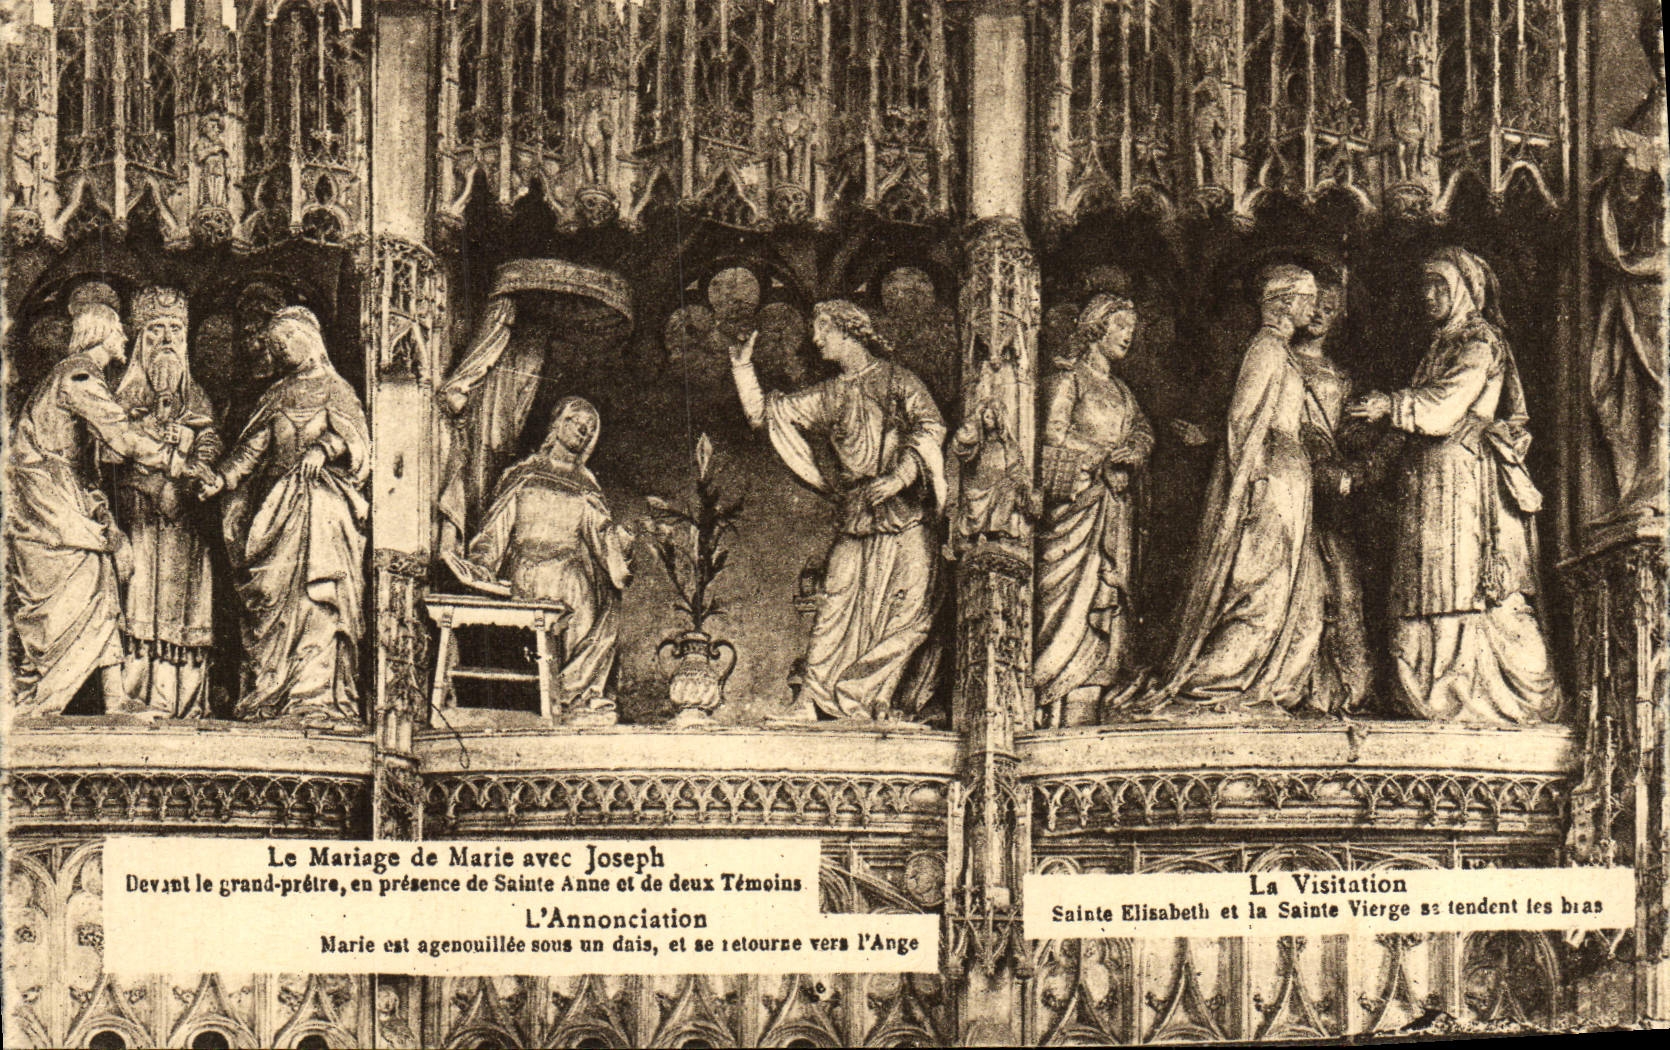 Le Mariage de Marie avec Joseph
Devant le grand-prêtre, en présence de Sainte Anne et de deux Témoins
L'Annonciation
Marie est agenouillée sous un dais, et se retourne vers l'Ange
La Visitation
Sainte Elisabeth et la Sainte Vierge se tendent les bras